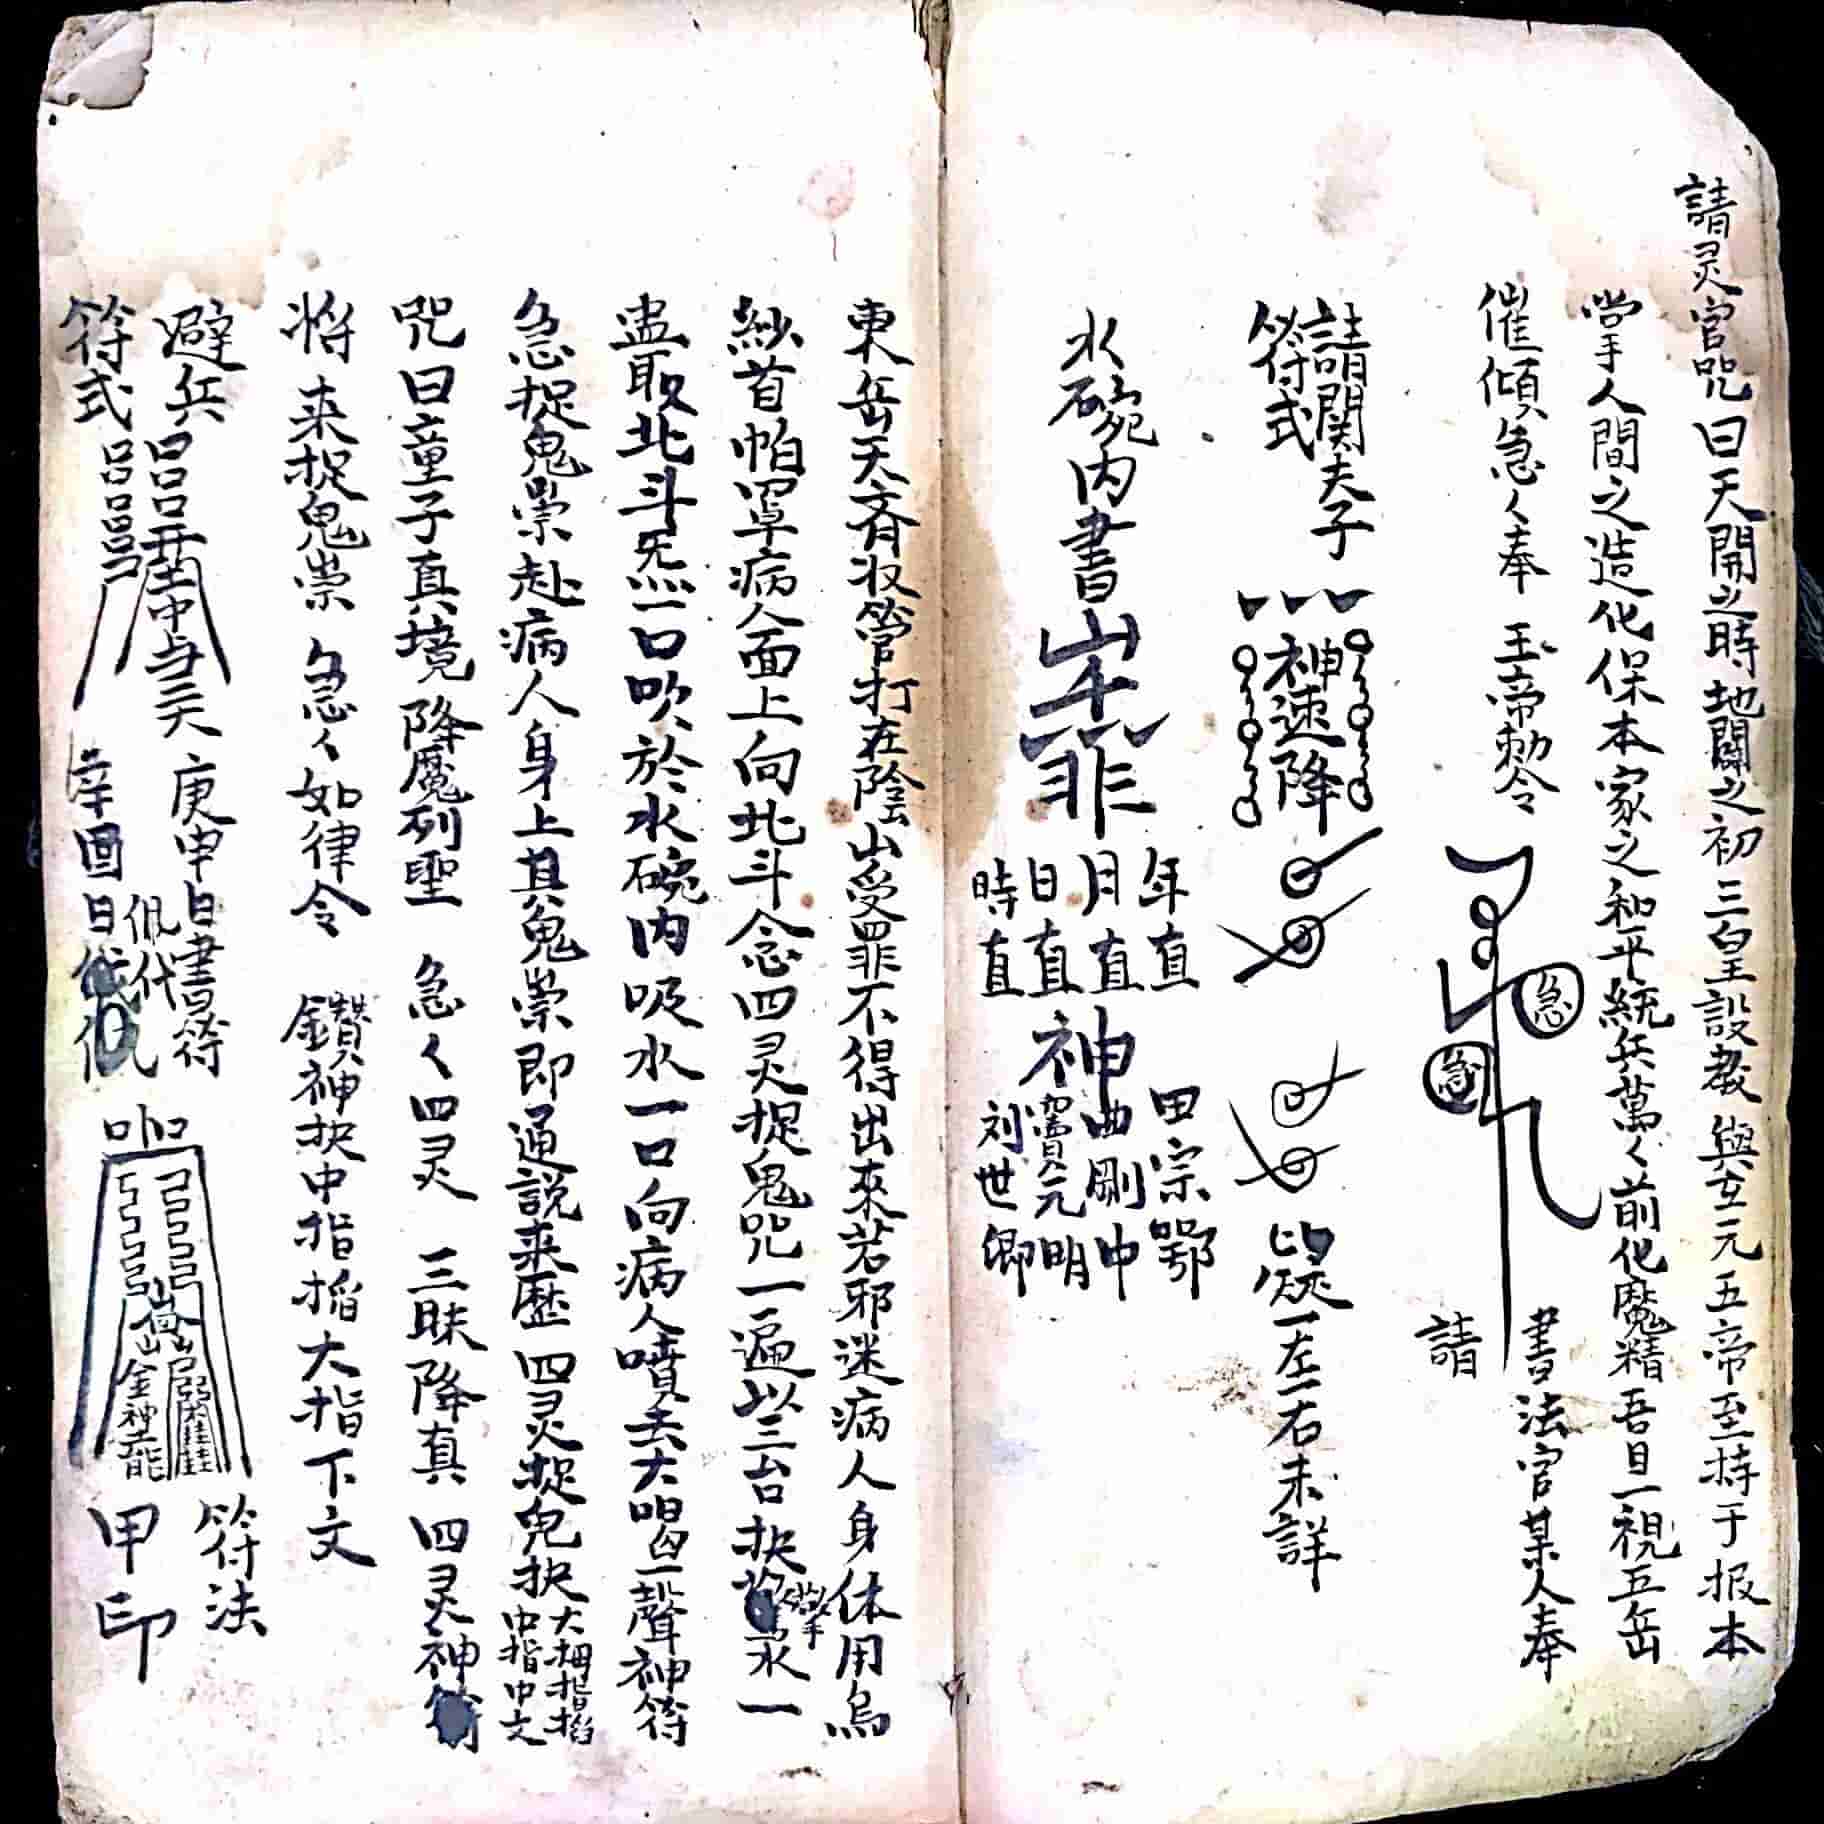 請灵官咒曰天開之時地闢之初三皇設教與立元五帝至持于报本
掌人間之造化保本家之和平統兵萬々前化魔精吾目一視五岳
催傾急々奉 玉帝勅令
急
急
書法官某人奉
請
請關夫子
符式
神速降
一左一右未詳
水碗内書
罪
年直
月直
日直
時直
神
田宗鄂
曲剛中
竇元明
刘世卿
東岳天齊收管打在陰山受罪不得出來若邪迷病人身体用烏
紗首帕罩病人面上向北斗念四灵捉鬼咒一遍以三台抉掌水一
盅取北斗炁一口吹於水碗内吸水一口向病人噴去大喝一聲神符
急捉鬼崇赴病人身上其鬼崇即通説来歷四灵捉鬼抉
大拇指掐
中指中文
咒曰童子真境降魔列聖 急々四灵 三昧降真 四灵神
将来捉鬼崇 急々如律令 鑽神抉中指掐大指下文
避兵
符式
庚申日書符
辛酉日
佩代
金神
符法
甲印